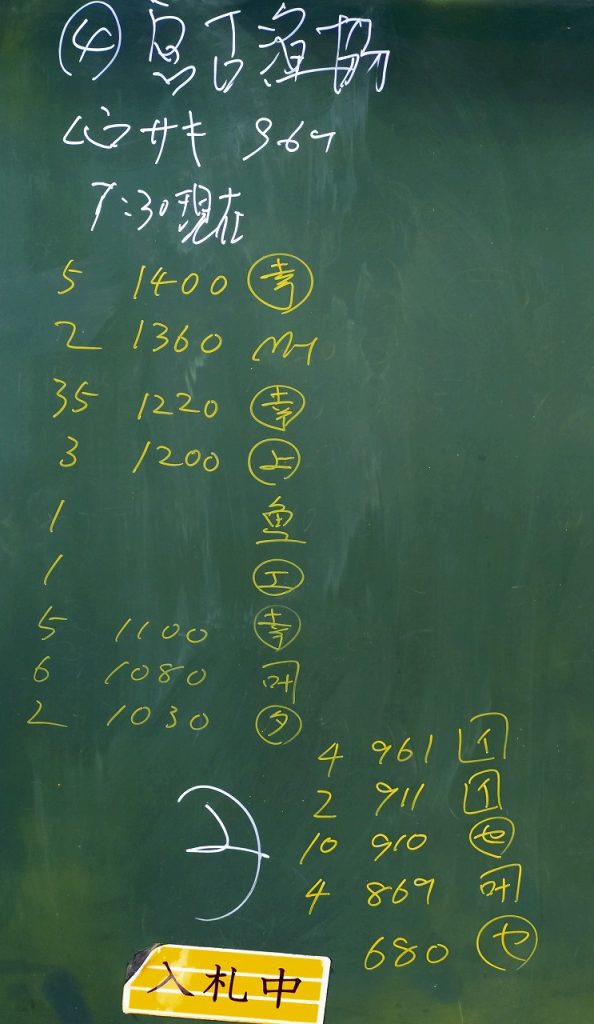 ④ 宮古漁協
サ 369
7:30現在
5 1400 幸
2 1360
35 1220 幸
3 1200 上
1 魚
1 エ
5 1100 幸
6 1080
2 1030 タ
4 961 イ
2 911 イ
10 910 セ
4 869
680 セ
入札中